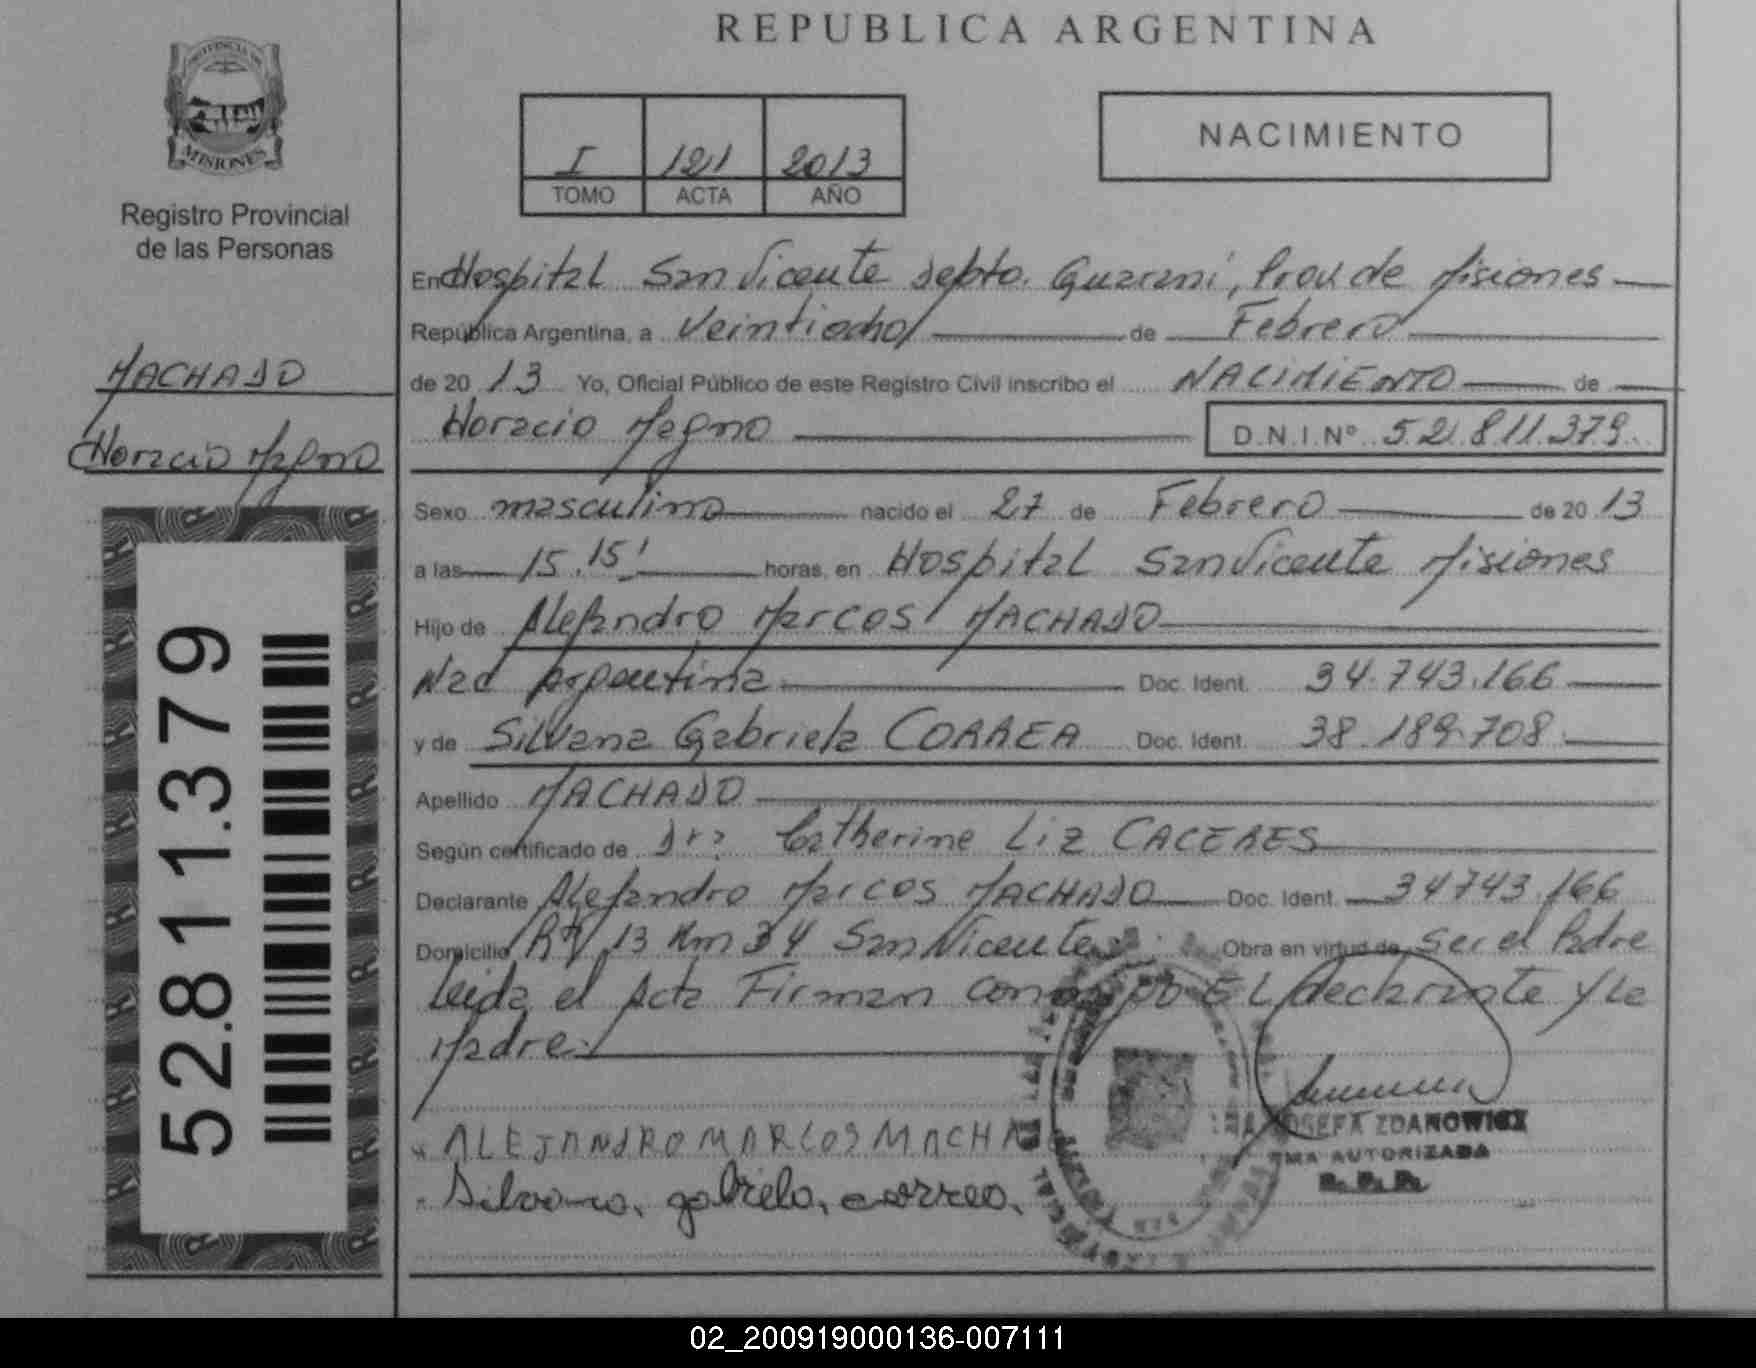 REPUBLICA ARGENTINA
PROVINCIA DE
MISIONES
Registro Provincial
de las Personas
I 121 2013
TOMO ACTA AÑO
NACIMIENTO
MACHADO
Horacio Magno
52.811.379
En Hospital San Vicente depto. Guarani, Prov de Misiones
República Argentina, a Veintiocho de Febrero
de 20 13 Yo, Oficial Público de este Registro Civil inscribo el NACIMIENTO de
Horacio Magno D.N.I.Nº 52.811.379
Sexo masculino nacido el 27 de Febrero de 20 13
a las 15.15' horas, en Hospital San Vicente Misiones
Hijo de Alejandro Marcos MACHADO
Nac Argentina Doc. Ident. 34.743.166
y de Silvana Gabriela CORREA Doc. Ident. 38.189.708
Apellido MACHADO
Según certificado de Dra Catherine Liz CACERES
Declarante Alejandro Marcos MACHADO Doc. Ident. 34743.166
Domicilio R 13 Km 34 San Vicente Obra en virtud de ser el Padre
leida el Acta Firman EL declarante y la
Madre
ALEJANDRO MARCOS MACHA
Silvana, gabriela, correa.
JOSEFA ZDANOWICZ
FIRMA AUTORIZADA
R.P.P.
02_200919000136-007111